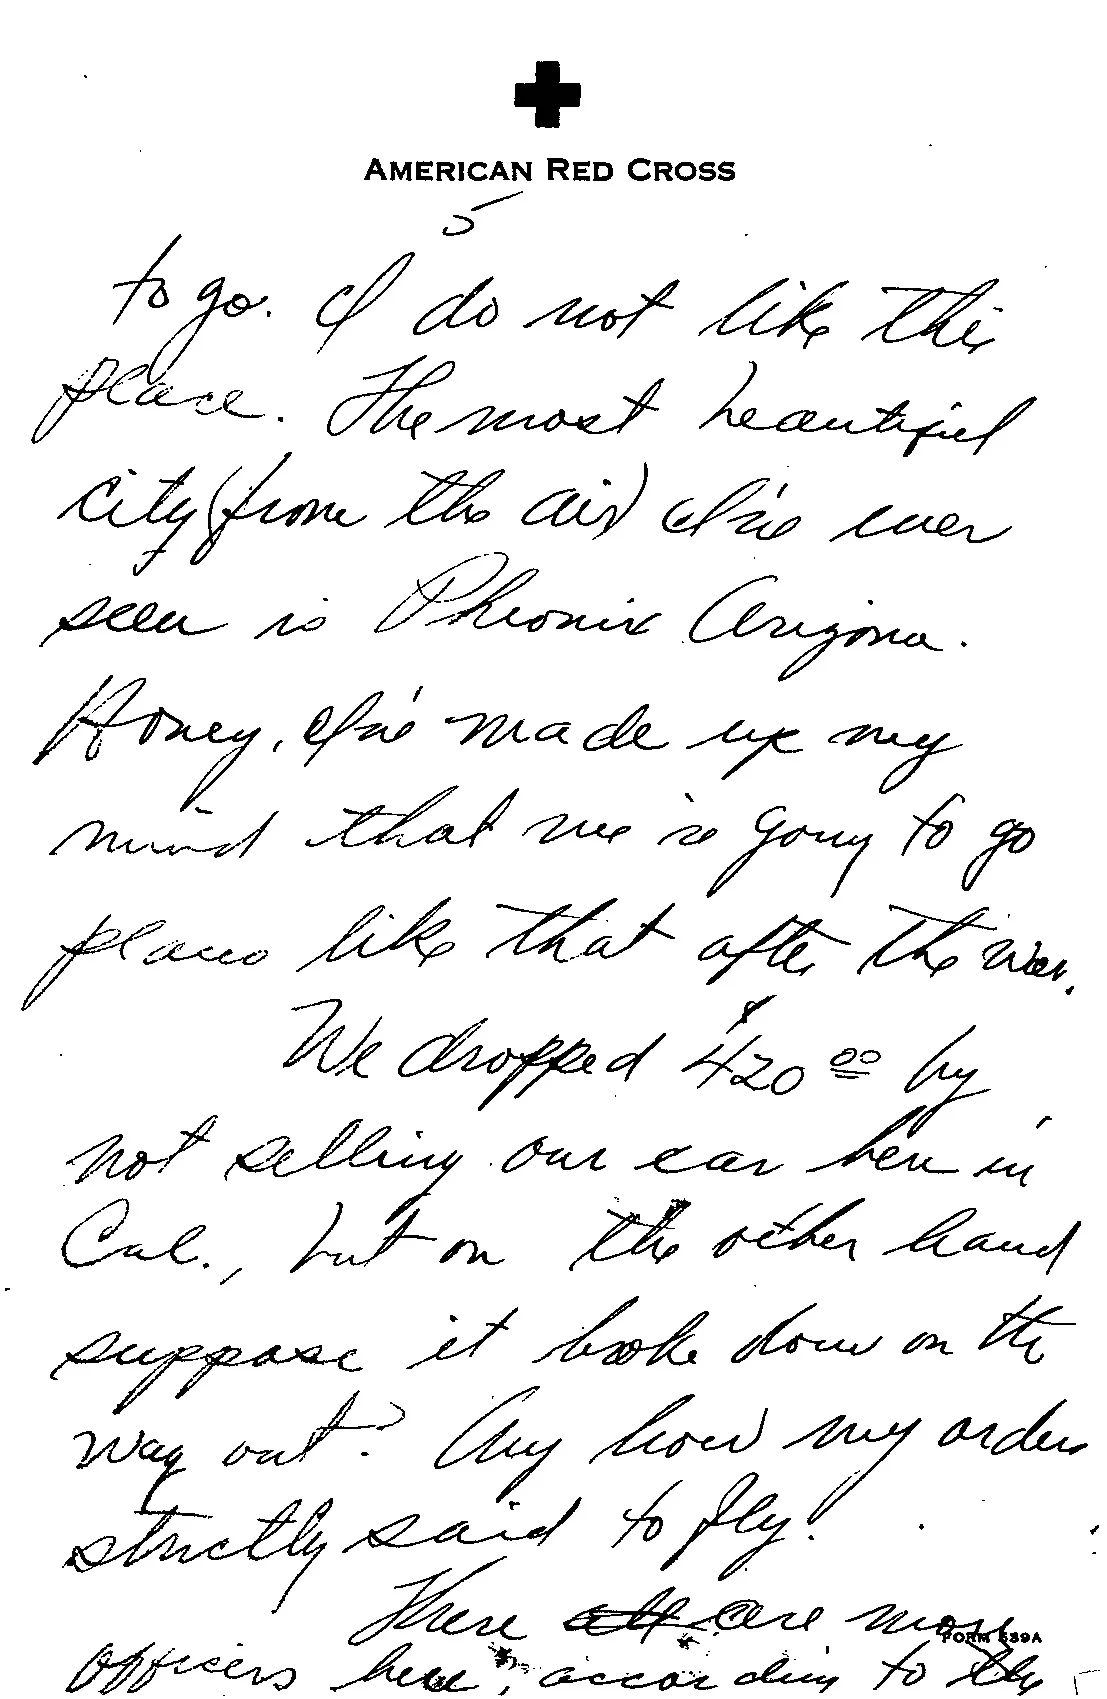 AMERICAN RED CROSS
5
to go. I do not like this
place. The most beautiful
city (from the air) I've ever
seen is Pheonix Arizona.
Honey, I've made up my
mind that we're going to go
places like that after the war.
We dropped $420.00 by
not selling our car here in
Cal., but on the other hand
suppose it broke down on the
way out? Any how my orders
strictly said to fly.
There all are more
FORM 539A
officers here, according to the